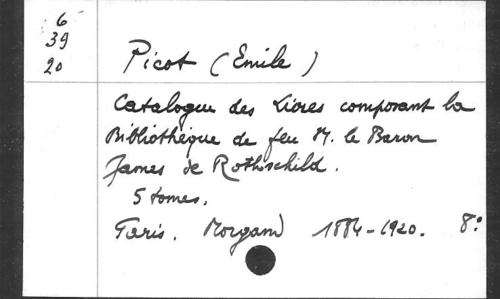 6
39
20
Picot (Emile)
Catalogue des Livres composant la
Bibliothèque de feu M. le Baron
James de Rothschild.
5 tomes.
Paris. Morgand 1884-1920. 8°